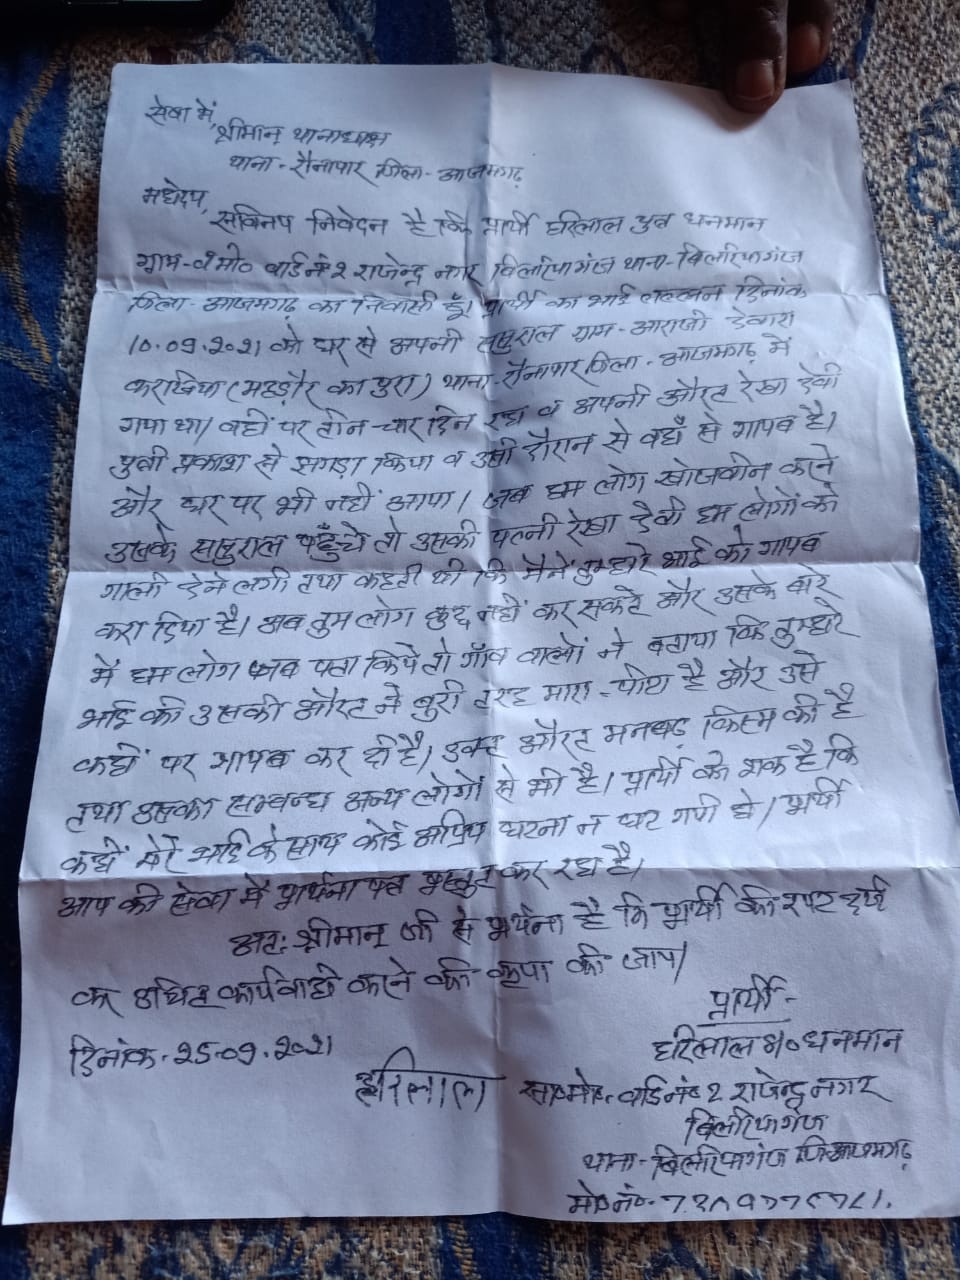 सेवा में,
श्रीमान् थानाध्यक्ष
थाना - रौनापार जिला - आजमगढ़
महोदय,
सविनय निवेदन है कि प्रार्थी हरिलाल पुत्र धनमान
ग्राम - व मो० वार्ड नं० 2 राजेन्द्र नगर बिलरियागंज थाना - बिलरियागंज
जिला - आजमगढ़ का निवासी हूँ। प्रार्थी का भाई लल्लन दिनांक
10.09.2021 को घर से अपनी ससुराल ग्राम - आराजी देवारा
करखिया (मठ्ठौर का पुरा) थाना - रौनापार जिला - आजमगढ़ में
गया था। वहीं पर तीन-चार दिन रहा व अपनी औरत रेखा देवी
पुत्री प्रकाश से झगड़ा किया व उसी दौरान से वहाँ से गायब है।
और घर पर भी नहीं आया। जब हम लोग खोजबीन करने
उसके ससुराल पहुँचे तो उसकी पत्नी रेखा देवी हम लोगों को
गाली देने लगी तथा कहती थी कि मैंने तुम्हारे भाई को गायब
करा दिया है। अब तुम लोग कुछ नहीं कर सकते और उसके बारे
में हम लोग जब पता किये तो गाँव वालों ने बताया कि तुम्हारे
भाई को उसकी औरत ने बुरी तरह मारा - पीटा है और उसे
कहीं पर गायब कर दी है। उक्त औरत मनबढ़ किस्म की है
तथा उसका सम्बन्ध अन्य लोगों से भी है। प्रार्थी को शक है कि
कहीं मेरे भाई के साथ कोई अप्रिय घटना न घट गयी हो। प्रार्थी
आप की सेवा में प्रार्थना पत्र प्रस्तुत कर रहा है।
अतः श्रीमान् जी से प्रार्थना है कि प्रार्थी की रपट दर्ज
कर उचित कार्यवाही करने की कृपा की जाय।
प्रार्थी -
दिनांक - 25.09.2021
हरिलाल s/o धनमान
हरिलाल
सा० मो० - वार्ड नं० 2 राजेन्द्र नगर
बिलरियागंज
थाना - बिलरियागंज जि० आजमगढ़
मो० नं० -